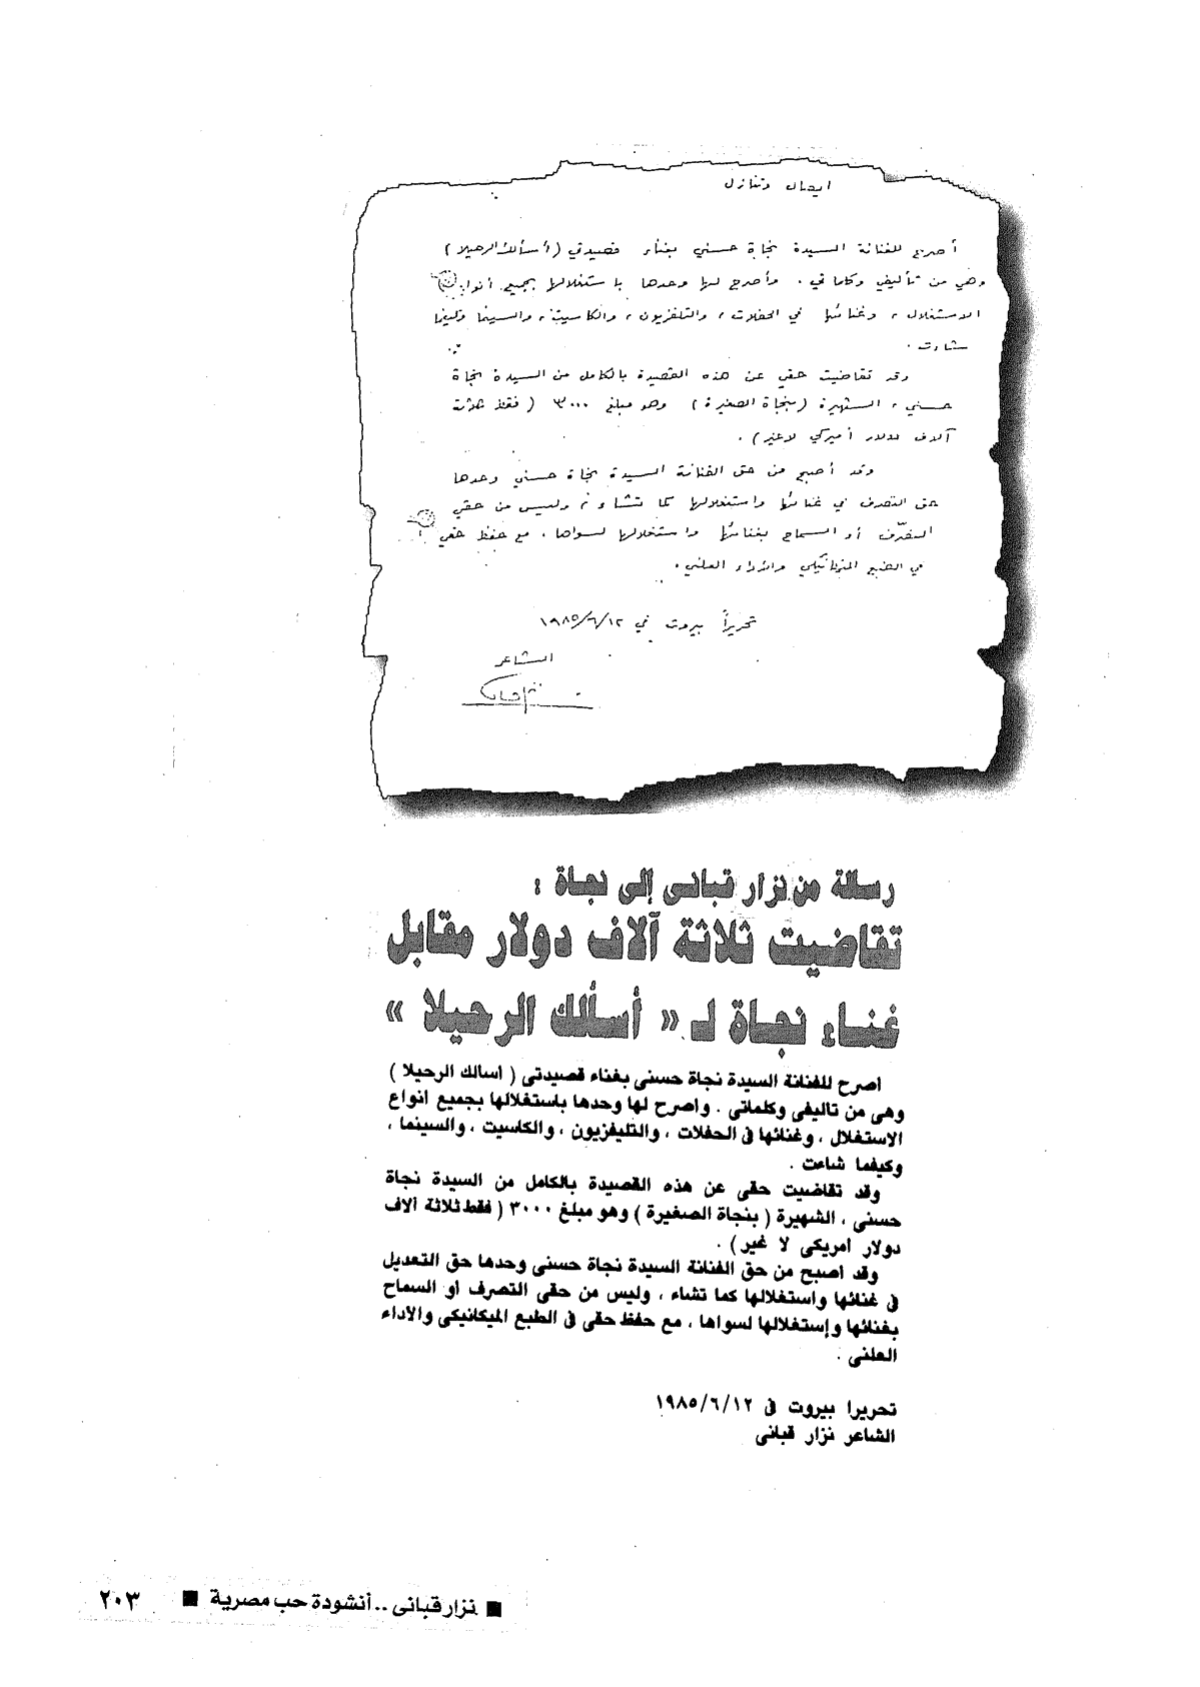 ايصال وتنازل
أصرح للفنانة السيدة نجاة حسني بغناء قصيدتي (أسألك الرحيلا)
وهي من تأليفي وكلماتي . وأصرح لها وحدها باستغلالها بجميع أنواع
الاستغلال ، وغنائها في الحفلات ، والتلفزيون ، والكاسيت ، والسينما وكيفما
شاءت .
وقد تقاضيت حقي عن هذه القصيدة بالكامل من السيدة نجاة
حسني ، الشهيرة (بنجاة الصغيرة) وهو مبلغ ٣٠٠٠ ( فقط ثلاثة
آلاف دولار أميركي لاغير) .
وقد أصبح من حق الفنانة السيدة نجاة حسني وحدها
حق التصرف في غنائها واستغلالها كما تشاء ، وليس من حقي
التصرّف أو السماح بغنائها واستغلالها لسواها ، مع حفظ حقي
في الطبع الميكانيكي والأداء العلني .
تحريراً بيروت في ١٩٨٥/٦/١٢
الشاعر
نزار قباني
رسالة من نزار قبانى إلى نجاة :
تقاضيت ثلاثة آلاف دولار مقابل
غناء نجاة لـ « أسألك الرحيلا »
اصرح للفنانة السيدة نجاة حسنى بغناء قصيدتى ( اسالك الرحيلا )
وهى من تاليفى وكلماتى . واصرح لها وحدها باستغلالها بجميع انواع
الاستغلال ، وغنائها فى الحفلات ، والتليفزيون ، والكاسيت ، والسينما ،
وكيفما شاءت .
وقد تقاضيت حقى عن هذه القصيدة بالكامل من السيدة نجاة
حسنى ، الشهيرة ( بنجاة الصغيرة ) وهو مبلغ ٣٠٠٠ ( فقط ثلاثة الاف
دولار امريكى لا غير ) .
وقد اصبح من حق الفنانة السيدة نجاة حسنى وحدها حق التعديل
فى غنائها واستغلالها كما تشاء ، وليس من حقى التصرف او السماح
بغنائها وإستغلالها لسواها ، مع حفظ حقى فى الطبع الميكانيكى والاداء
العلنى .
تحريرا بيروت فى ١٩٨٥/٦/١٢
الشاعر نزار قبانى
■ نزار قبانى .. أنشودة حب مصرية ■ ٢٠٣